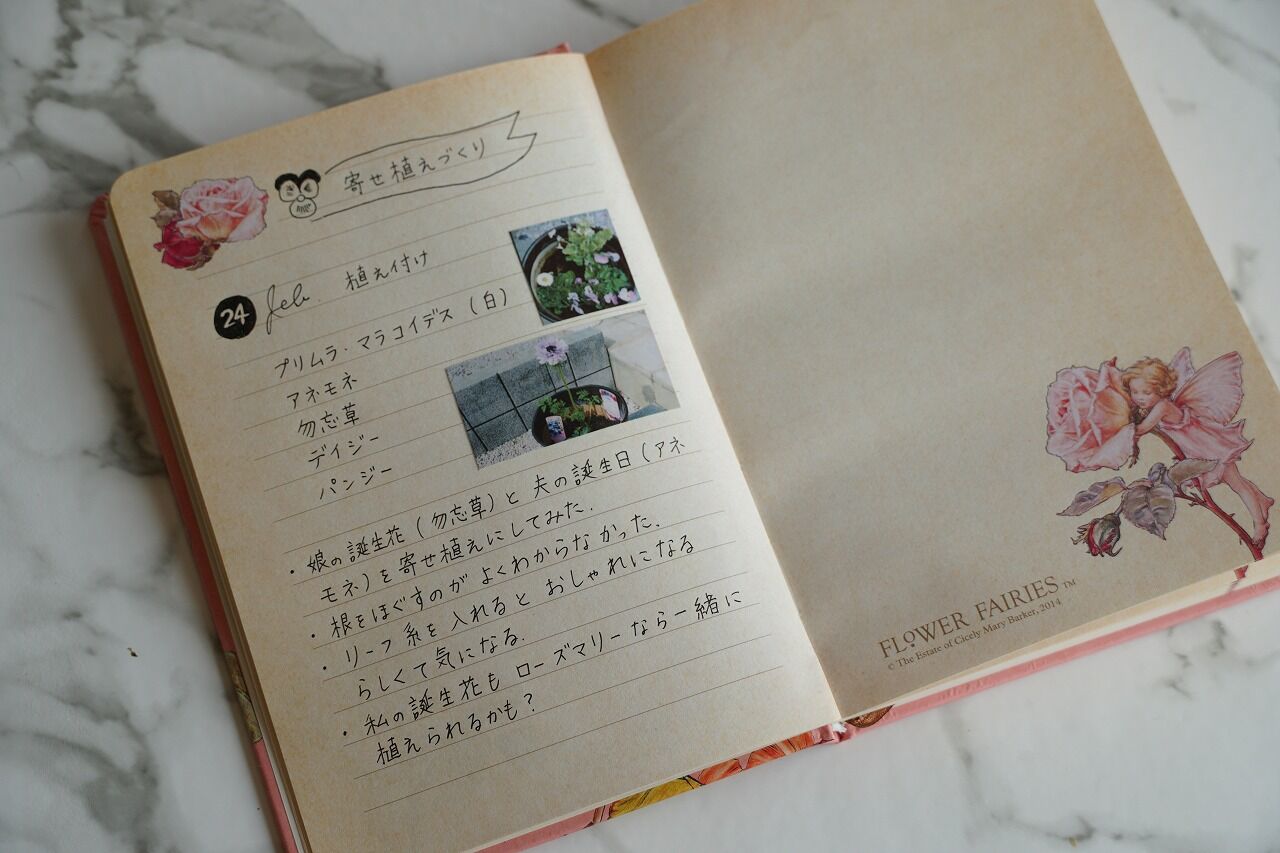 寄せ植えづくり
24 Feb. 植え付け
プリムラ・マラコイデス (白)
アネモネ
勿忘草
デイジー
パンジー
・娘の誕生花 (勿忘草) と 夫の誕生日 (アネ
モネ) を寄せ植えにしてみた.
・根をほぐすのが よくわからなかった.
・リーフ系を入れると おしゃれになる
らしくて気になる.
・私の誕生花も ローズマリーなら一緒に
植えられるかも?
FLOWER FAIRIES TM
© The Estate of Cicely Mary Barker, 2014